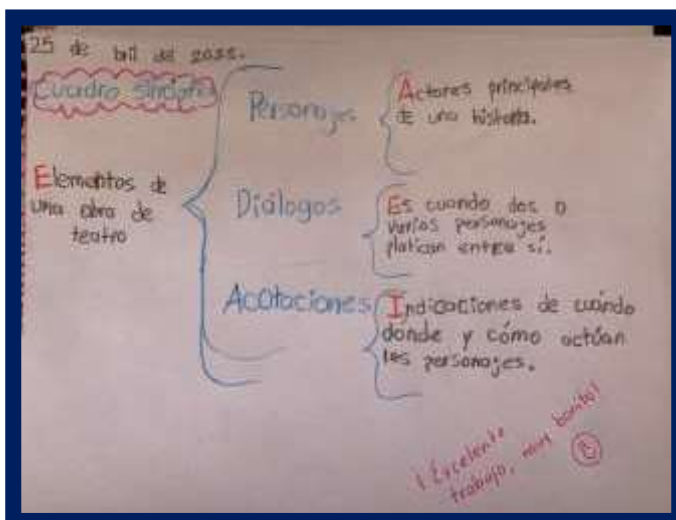 25 de bril del 2022.
Cuadro sinóptico
Elementos de
una obra de
teatro
Personajes
Actores principales
de una historia.
Diálogos
Es cuando dos o
varios personajes
platican entre sí.
Acotaciones
Indicaciones de cuándo
donde y cómo actúan
los personajes.
¡Excelente
trabajo, muy bonito!